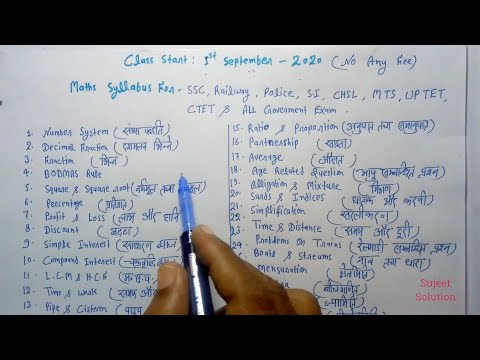 Class Start : 1st September - 2020 (No Any Fee)
Maths Syllabus For - SSC, Railway, Police, S.I, CHSL, MTS, UPTET,
CTET & ALL Government Exam
1. Number System (संख्या पद्धति)
2. Decimal Fraction (दशमलव भिन्नें)
3. Fraction (भिन्न)
4. BODMAS Rule
5. Square & Square root (वर्गमूल तथा
6. Percentage (प्रतिशत)
7. Profit & Loss (लाभ और हानि
8. Discount (बट्टा)
9. Simple Interest (साधारण ब्याज)
10. Compound Interest (चक्रवृद्धि ब्याज
11. L.C.M & H.C.F
12. Time & Work (समय और
13. Pipe & Cistern (पाइप
15. Ratio & Proportion (अनुपात तथा समानुपात)
16. Partnership (साझा)
17. Average (औसत)
18. Age Related Question (आयु सम्बन्धित प्रश्न)
19. Alligation & Mixture (मिश्रण)
20. Surds & Indices (घातांक और करणी)
21. Simplification (सरलीकरण)
Time & Distance (समय और दूरी)
Problems on Trains (रेलगाड़ी सम्बन्धित प्रश्न)
Boats & Streams (नाव तथा धारा)
Mensuration
(बीजगणित)
Sujeet
Solution